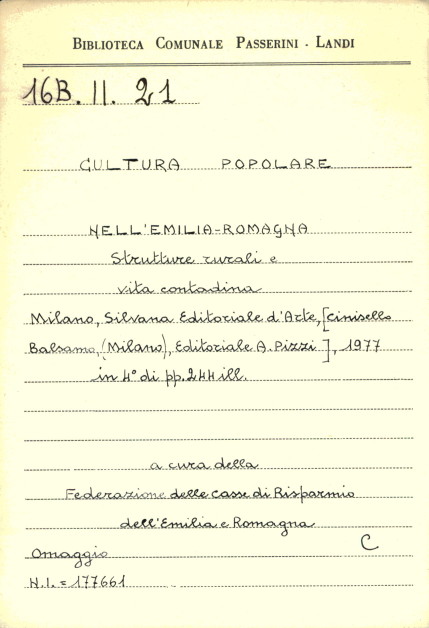 BIBLIOTECA COMUNALE PASSERINI - LANDI
16B. II. 21
CULTURA POPOLARE
NELL'EMILIA-ROMAGNA
Strutture rurali e
vita contadina
Milano, Silvana Editoriale d'Arte, [Cinisello
Balsamo, (Milano), Editoriale A. Pizzi], 1977
in 4° di pp. 244 ill.
a cura della
Federazione delle Casse di Risparmio
dell'Emilia e Romagna
C
Omaggio
N.I. = 177661